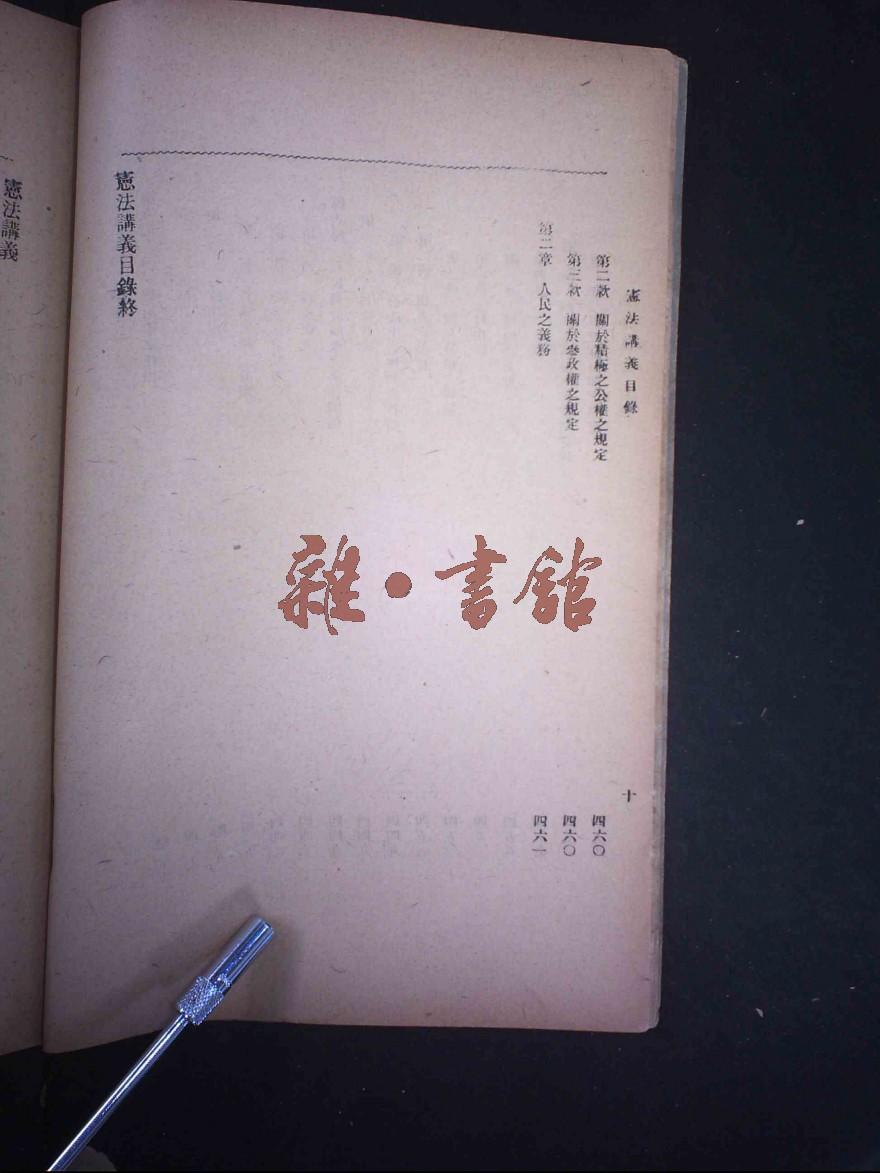 憲法講義目錄
十
第二款 關於積極之公權之規定
四六〇
第三款 關於參政權之規定
四六〇
第二章 人民之義務
四六一
憲法講義目錄終
憲法講義
雜·書館